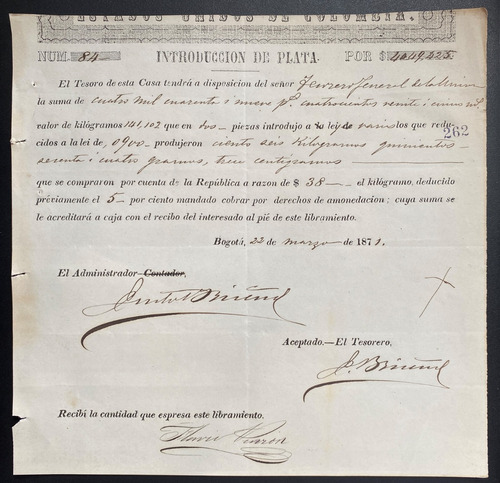 ESTADOS UNIDOS DE COLOMBIA.
NUM. 84 INTRODUCCION DE PLATA. POR $ 4049,425
El Tesoro de esta Casa tendrá a disposicion del señor Tesorero Jeneral de la Union
la suma de cuatro mil cuarenta i nueve ps. cuatrocientos veinte i cinco mls.
valor de kilógramos 141,102 que en dos piezas introdujo a la lei de varios los que redu-
262
cidos a la lei de, 0900 produjeron ciento seis kilogramos quinientos
sesenta i cuatro gramos, trece centigramos
que se compraron por cuenta de la República a razon de $ 38 el kilógramo, deducido
préviamente el 5 por ciento mandado cobrar por derechos de amonedacion; cuya suma se
le acreditará a caja con el recibo del interesado al pié de este libramiento.
Bogotá, 22 de marzo de 1871.
El Administrador Contador,
Aceptado.—El Tesorero,
Recibí la cantidad que espresa este libramiento.